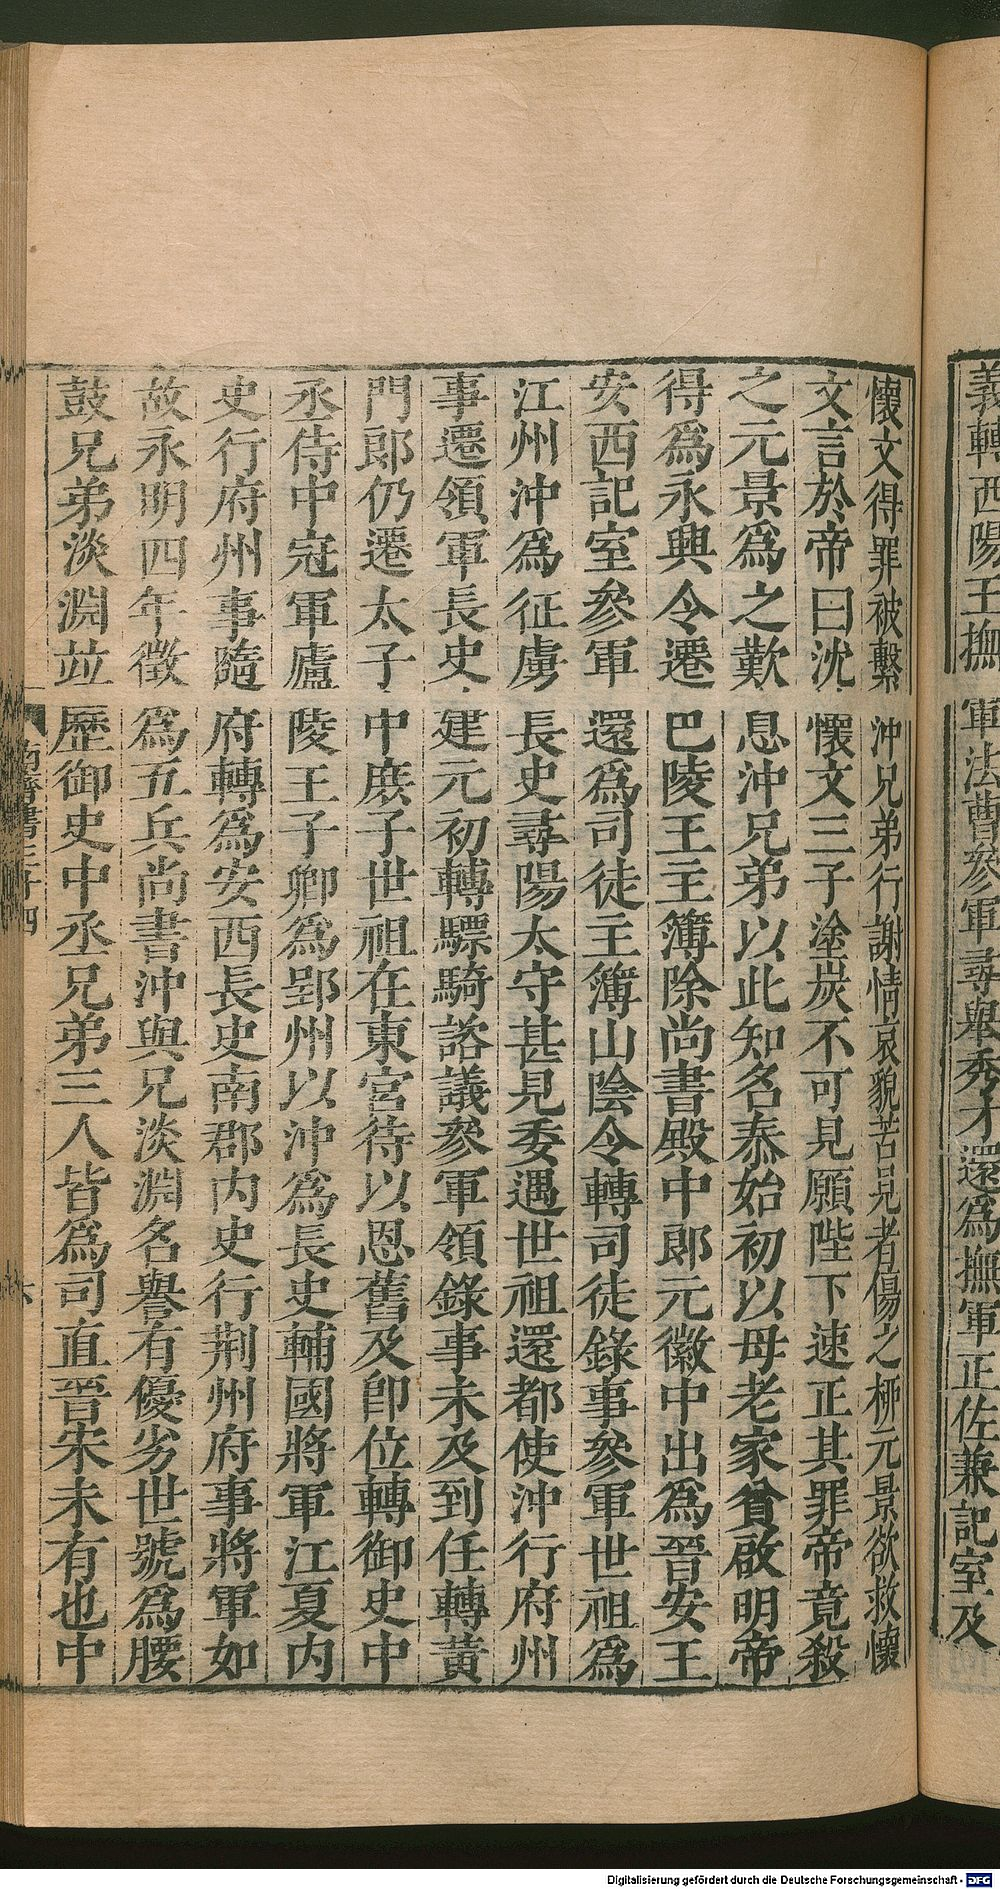 義轉西陽王撫軍法曹參軍尋舉秀才還爲撫軍正佐兼記室及
懷文得罪被繫沖兄弟行謝情哀貌苦見者傷之柳元景欲救懷
文言於帝曰沈懷文三子塗炭不可見願陛下速正其罪帝竟殺
之元景爲之歎息沖兄弟以此知名泰始初以母老家貧啟明帝
得爲永興令遷巴陵王主簿除尚書殿中郎元徽中出爲晉安王
安西記室參軍還爲司徒主簿山陰令轉司徒錄事參軍世祖爲
江州沖爲征虜長史尋陽太守甚見委遇世祖還都使沖行府州
事遷領軍長史建元初轉驃騎諮議參軍領錄事未及到任轉黃
門郎仍遷太子中庶子世祖在東宮待以恩舊及卽位轉御史中
丞侍中冠軍廬陵王子卿爲郢州以沖爲長史輔國將軍江夏內
史行府州事隨府轉爲安西長史南郡內史行荆州府事將軍如
故永明四年徵爲五兵尚書沖與兄淡淵名譽有優劣世號爲腰
鼓兄弟淡淵竝歷御史中丞兄弟三人皆爲司直晉宋未有也中
南齊書三十四
六
Digitalisierung gefördert durch die Deutsche Forschungsgemeinschaft - DFG